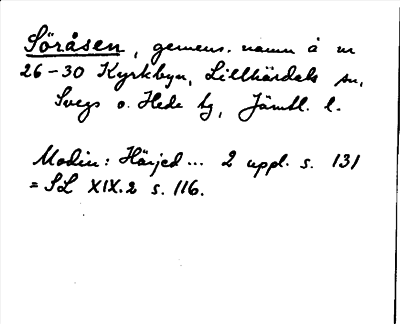 Söråsen, gemens. namn å nr
26-30 Kyrkbyn, Lillhärdals sn,
Svegs o. Hede tg, Jämtl. l.
Modin: Härjed... 2 uppl. s. 131
= SL XIX.2 s. 116.